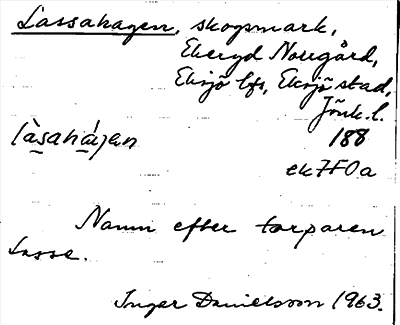 Lassahagen, skogsmark,
Ekeryd Norrgård,
Eksjö lfs, Eksjö stad,
Jönk.l.
188
ek7F0a
Namn efter torparen
Lasse.
Inger Danielsson 1963.